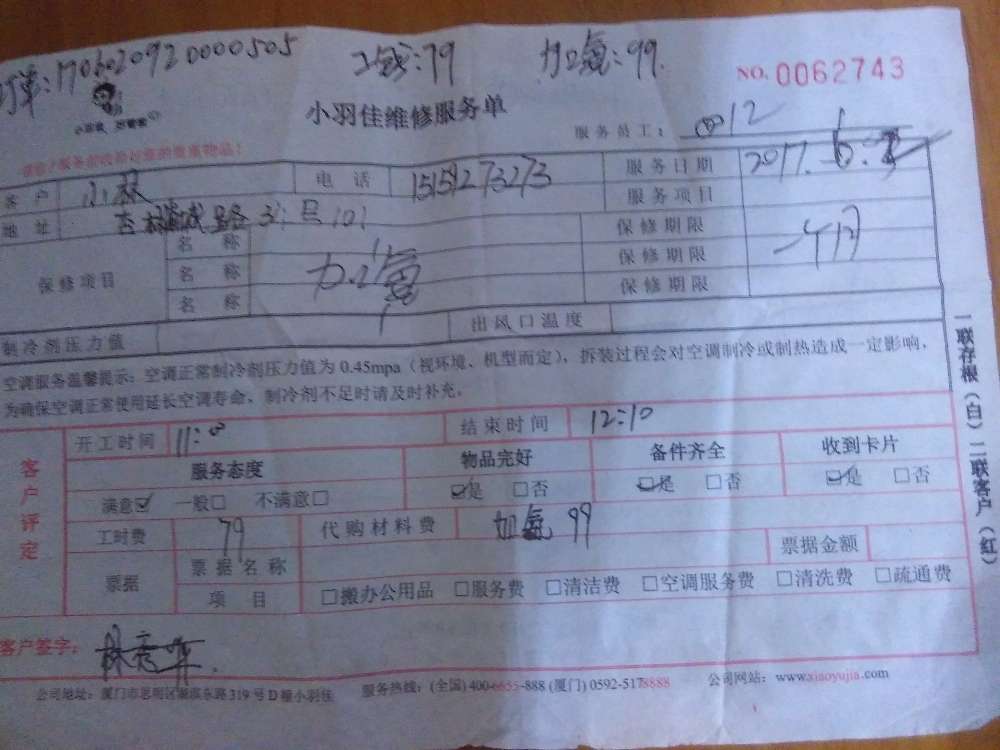 订单:1706020920000505 工钱:79 加氟:99.
NO. 0062743
小羽佳维修服务单
服务员工: 012
客户 小林 电话 15159273273 服务日期 2017.6.2
服务项目
地址 杏林 路 31号 101
保修项目 名称 加氟 保修期限 一个月
名称 保修期限
名称 保修期限
制冷剂压力值 出风口温度
空调服务温馨提示:空调正常制冷剂压力值为0.45mpa(视环境、机型而定),拆装过程会对空调制冷或制热造成一定影响,
为确保空调正常使用延长空调寿命,制冷剂不足时请及时补充。
客户评定
开工时间 11:0 结束时间 12:10
服务态度 物品完好 备件齐全 收到卡片
满意☑ 一般□ 不满意□ ☑是 □否 ☑是 □否 ☑是 □否
工时费 79 代购材料费 加氟 99
票据 票据名称 票据金额
项目 □搬办公用品 □服务费 □清洁费 □空调服务费 □清洗费 □疏通费
客户签字:
公司地址:厦门市思明区湖滨东路319号D幢小羽佳 服务热线:(全国)400-6655-888 (厦门)0592-5178888 公司网站:www.xiaoyujia.com
一联存根(白)二联客户(红)